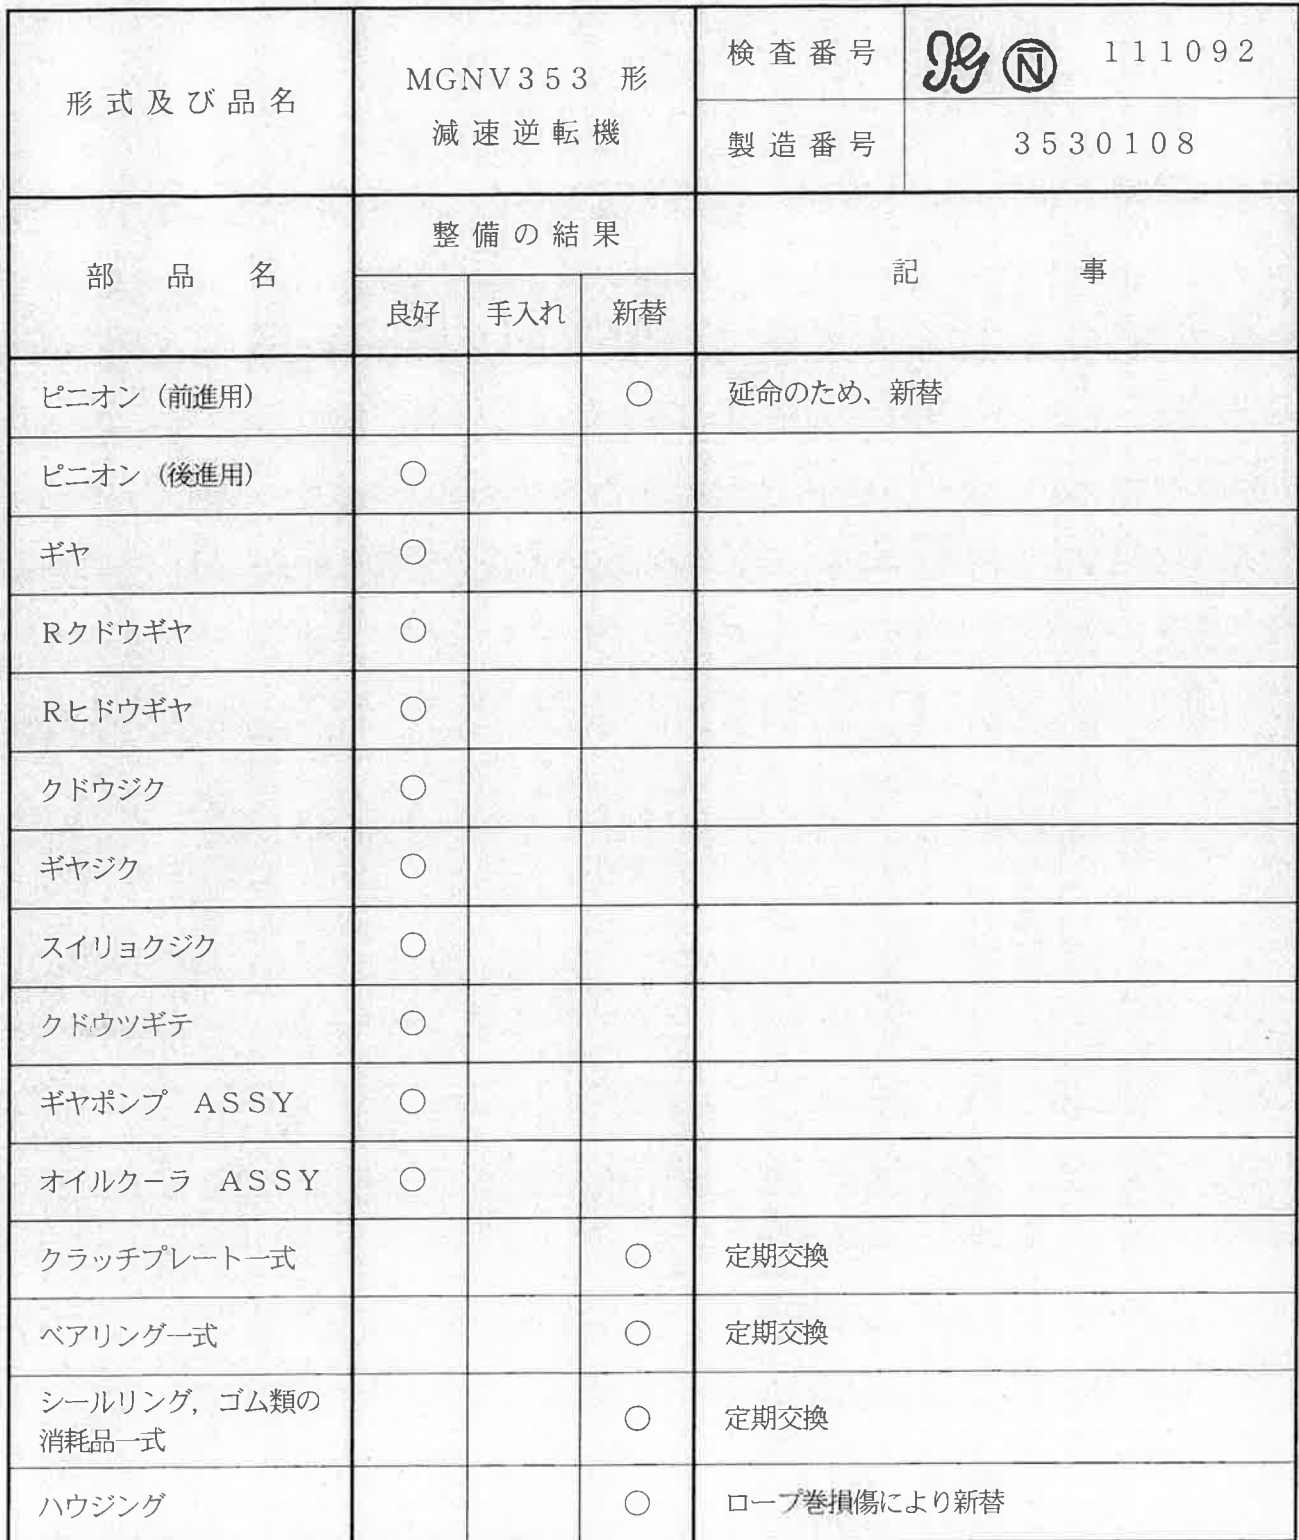 形式及び品名
MGNV353 形
減速逆転機
検査番号
JG Ⓝ 111092
製造番号
3530108
部品名
整備の結果
記事
良好 手入れ 新替
ピニオン(前進用) ○ 延命のため、新替
ピニオン(後進用) ○
ギヤ ○
Rクドウギヤ ○
Rヒドウギヤ ○
クドウジク ○
ギヤジク ○
スイリョクジク ○
クドウツギテ ○
ギヤポンプ ASSY ○
オイルクーラ ASSY ○
クラッチプレート一式 ○ 定期交換
ベアリング一式 ○ 定期交換
シールリング,ゴム類の
消耗品一式 ○ 定期交換
ハウジング ○ ロープ巻損傷により新替